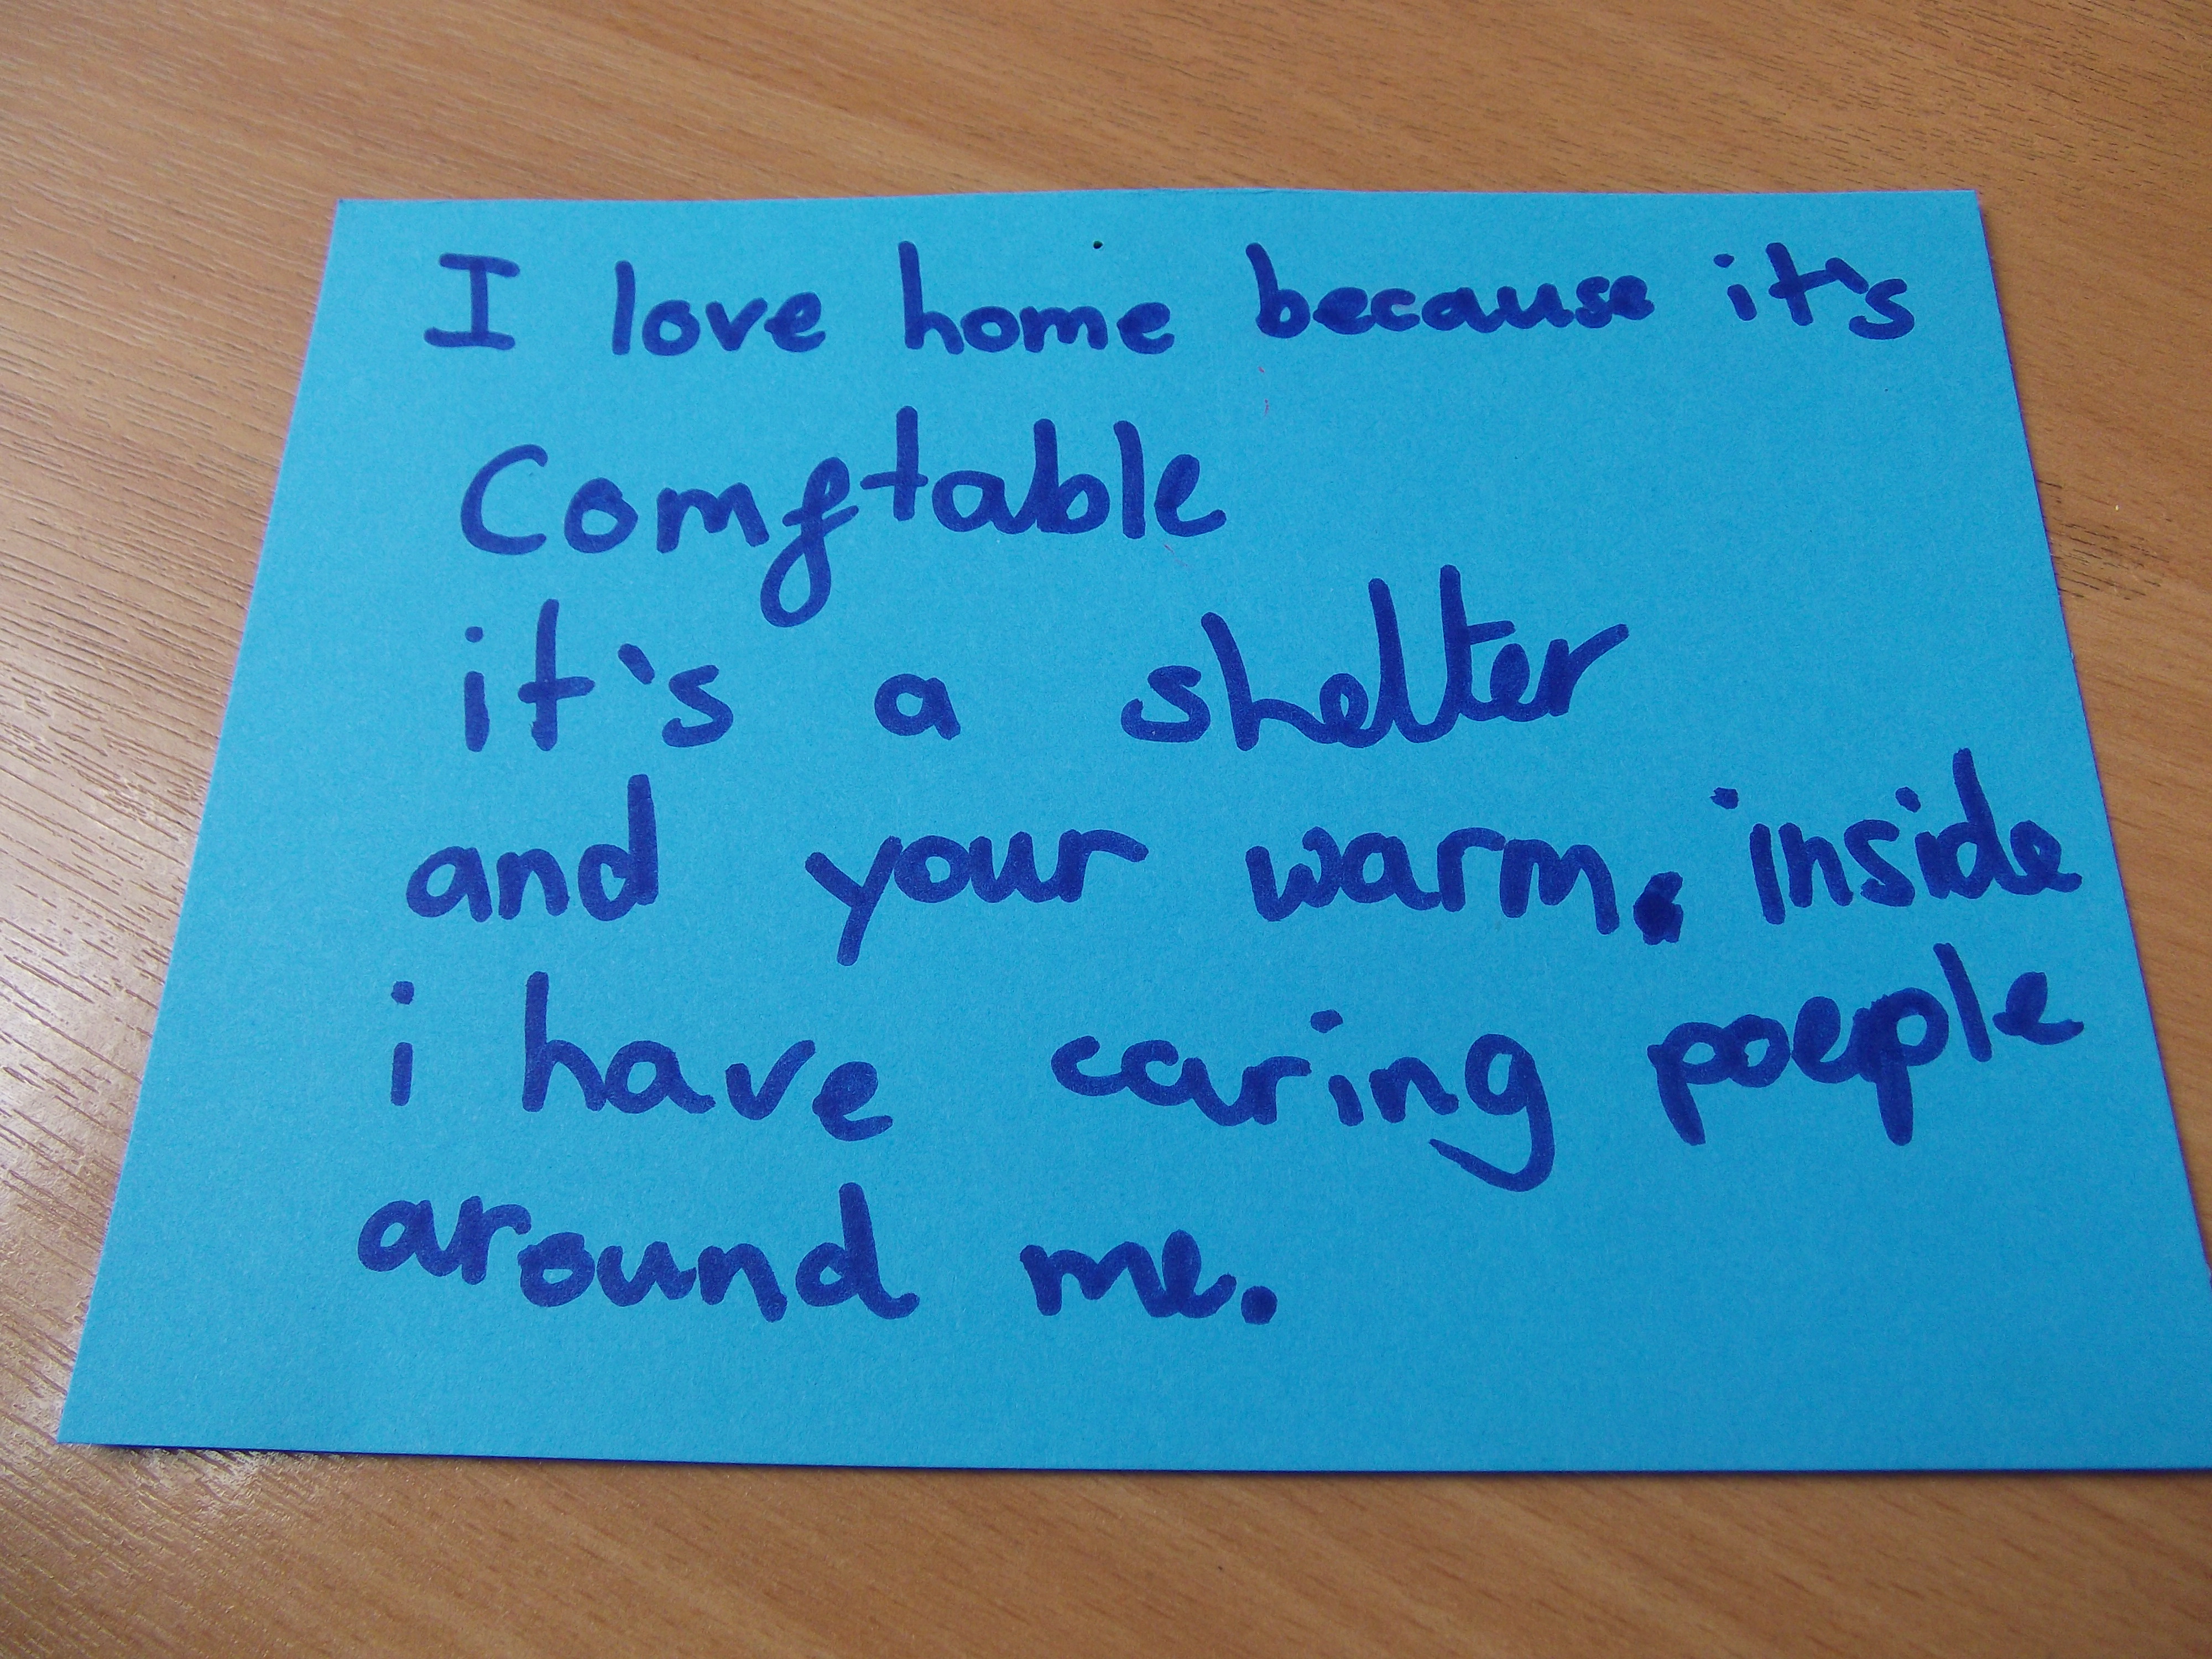 I love home because it's
Comftable
it's a shelter
and your warm. inside
i have caring poeple
around me.